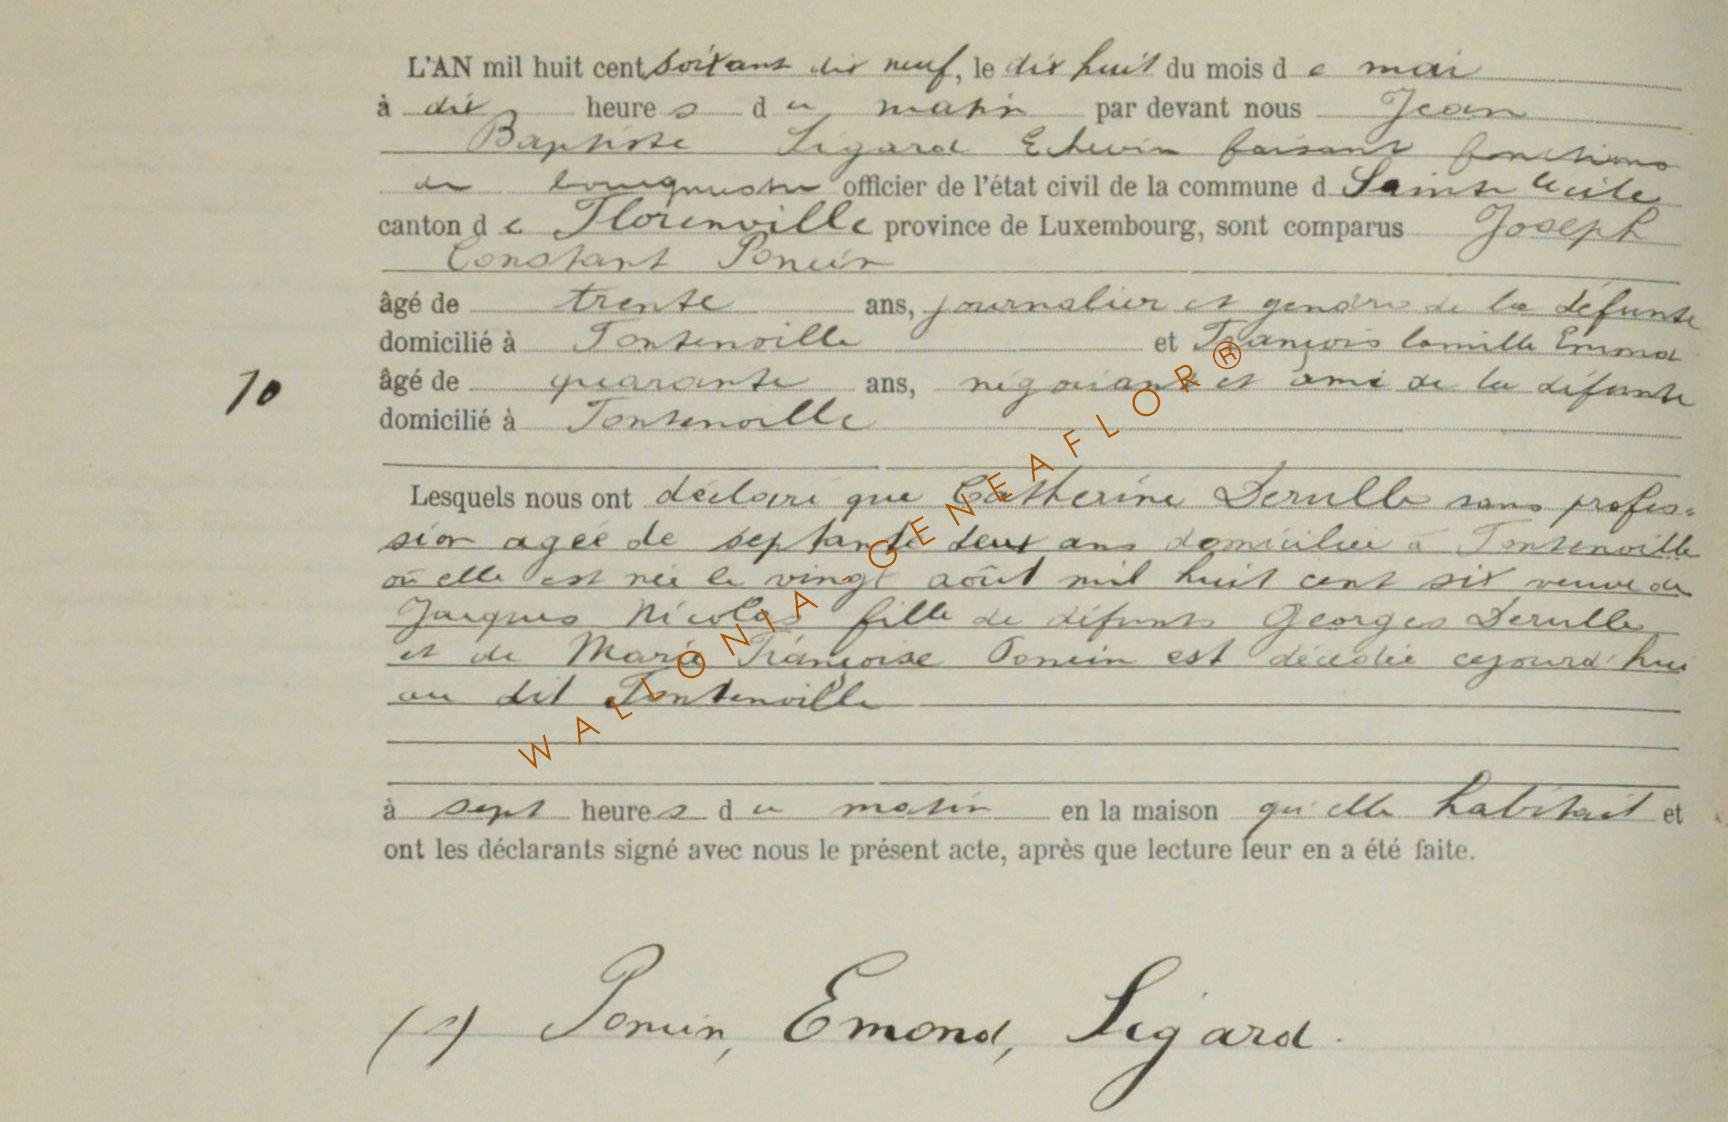 L'AN mil huit cent soixante dix neuf, le dix huit du mois d e mai
à dix heure s d u matin par devant nous Jean
Baptiste Sigard Echevin faisant fonctions
de bourgmestre officier de l'état civil de la commune d Sainte Cécile
canton d e Florenville province de Luxembourg, sont comparus Joseph
Constant Poncin
âgé de trente ans, journalier et gendre de la défunte
domicilié à Fontenoille et François Camille Emond
10
âgé de quarante ans, négociant et ami de la défunte
domicilié à Fontenoille
Lesquels nous ont déclaré que Catherine Derulle sans profes=
sion agée de septante deux ans domiciliée à Fontenoille
où elle est née le vingt août mil huit cent six veuve de
Jacques Nicolas fille de défunts Georges Derulle
et de Marie Françoise Poncin est décédée cejourd'hui
au dit Fontenoille
à sept heure s d u matin en la maison qu'elle habitait et
ont les déclarants signé avec nous le présent acte, après que lecture leur en a été faite.
(s) Poncin, Emond, Sigard.
WALLONIA . GENEAFLOR®